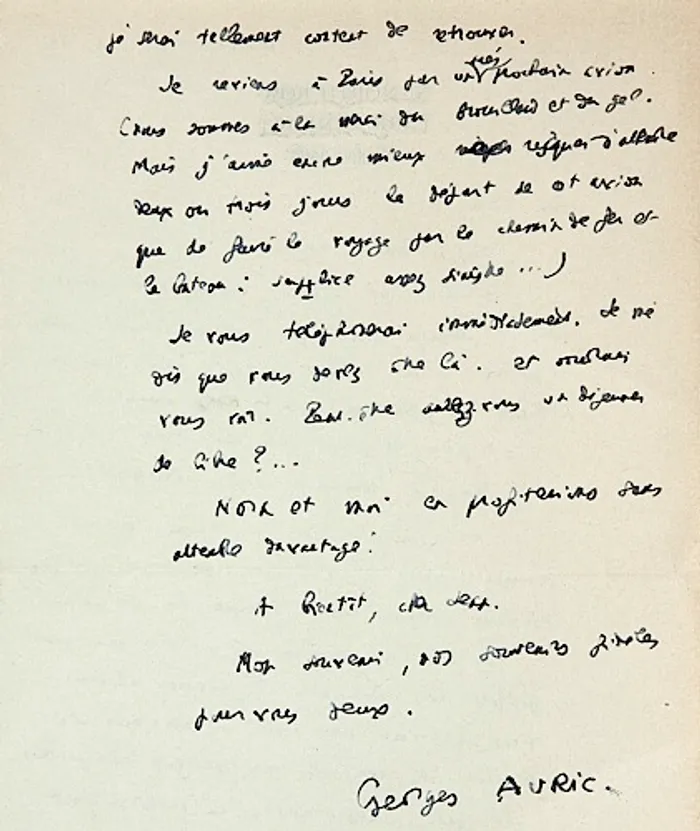 je serai tellement content de retrouver.
Je reviens à Paris par un très prochain avion.
(nous sommes à la merci du brouillard et du gel.
Mais j'aime encore mieux risquer d'attendre
deux ou trois jours le départ de cet avion
que de faire le voyage par le chemin de fer et
le bateau : supplice assez sinistre ...)
Je vous téléphonerai immédiatement. Je me
dis que vous serez être là. et voudrais
vous voir. Peut-être aurez-vous un déjeuner
de libre ?...
Nora et moi en profiterions sans
attendre davantage !
A bientôt, cher Jean.
Mon souvenir, nos souvenirs fidèles
pour vous deux.
Georges AURIC.